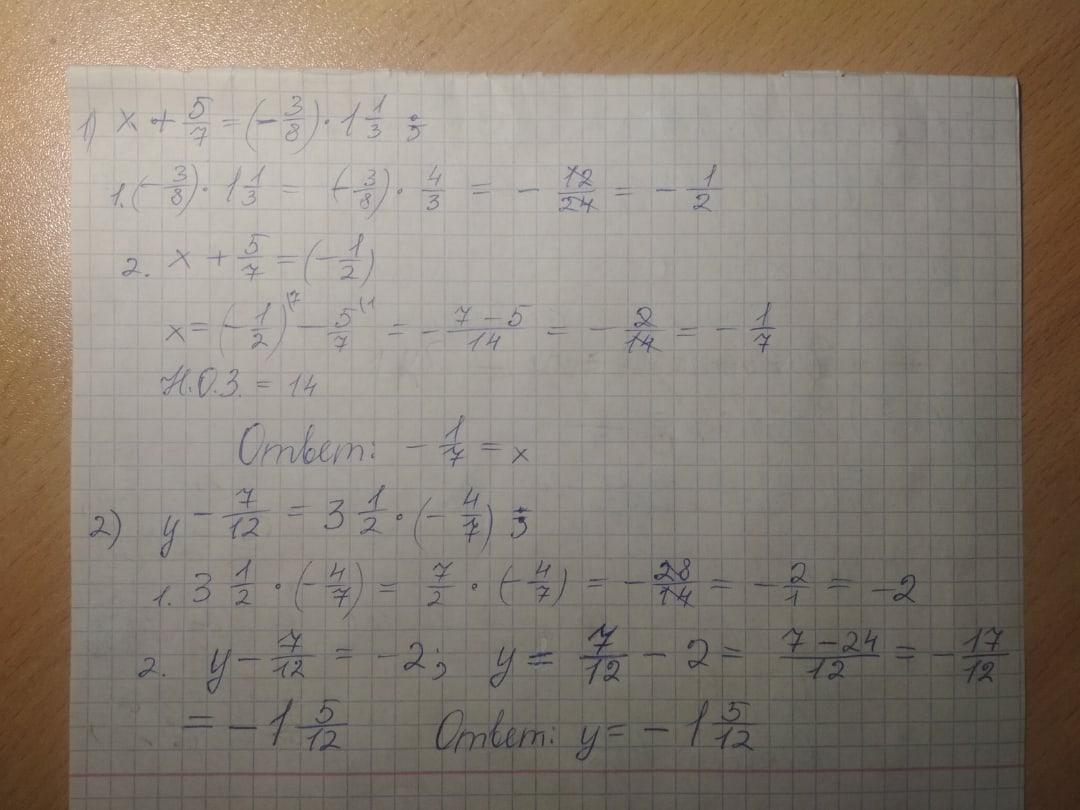 1) x + 5/7 = (-3/8) · 1 1/3 ;
1. (-3/8) · 1 1/3 = (-3/8) · 4/3 = - 12/24 = - 1/2
2. x + 5/7 = (-1/2)
x = (-1/2)^(7 - 5/7^(1 = - 7-5/14 = - 2/14 = - 1/7
Н.О.З. = 14
Ответ: - 1/7 = x
2) y - 7/12 = 3 1/2 · (-4/7) ;
1. 3 1/2 · (-4/7) = 7/2 · (-4/7) = - 28/14 = - 2/1 = -2
2. y - 7/12 = -2; y = 7/12 - 2 = 7-24/12 = - 17/12
= - 1 5/12 Ответ: y = - 1 5/12